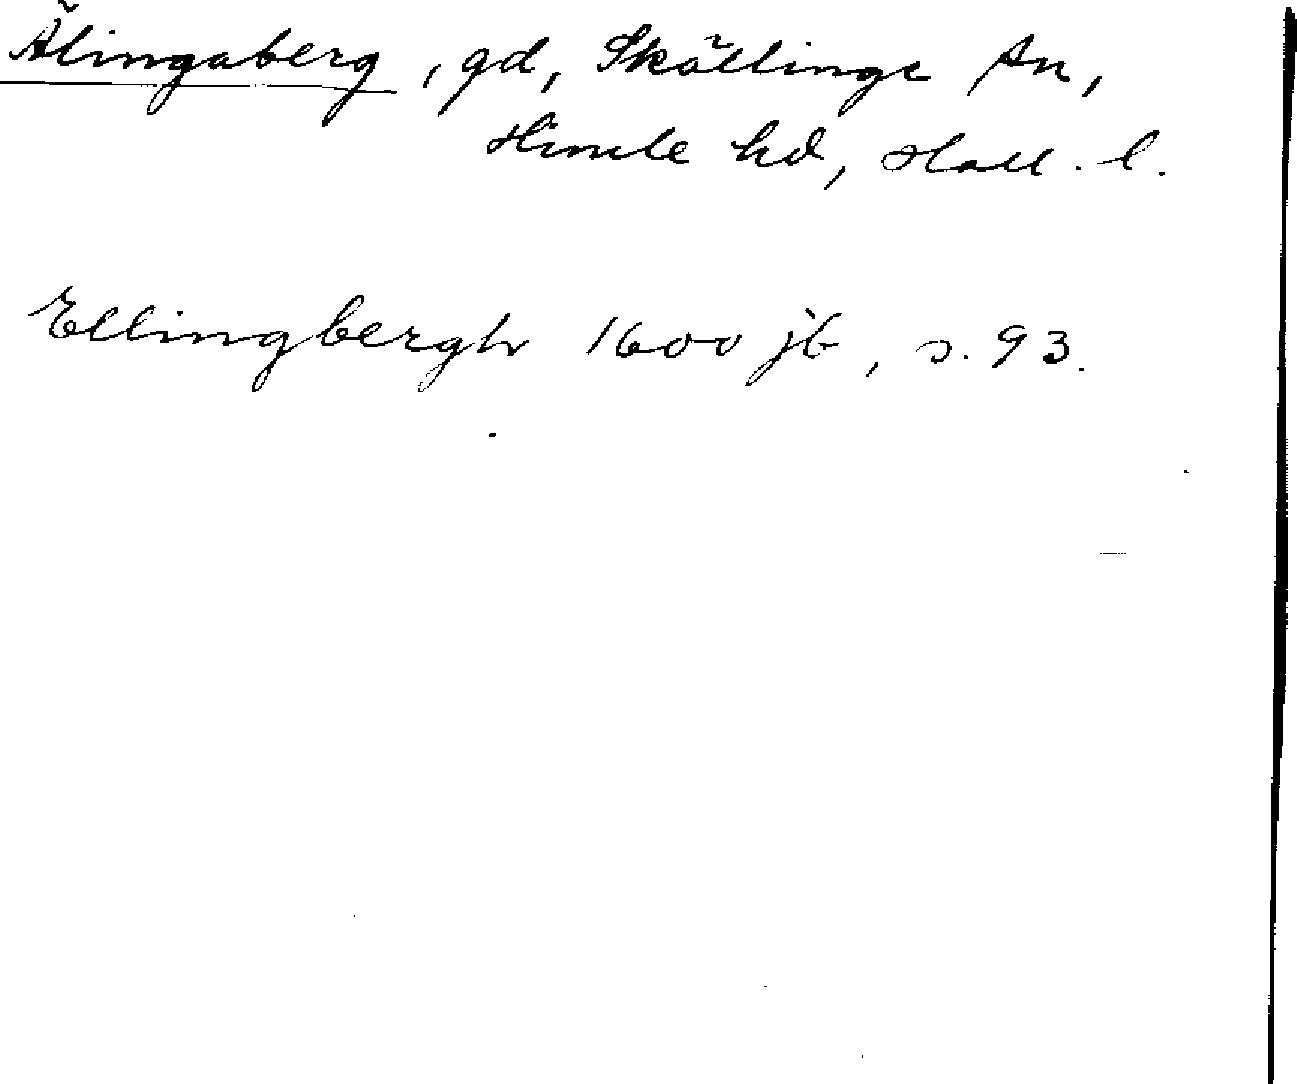 Älingaberg, gd, Skällinge sn,
Himle hd, Hall. l.
Ellingbergh 1600 jb, s. 93.